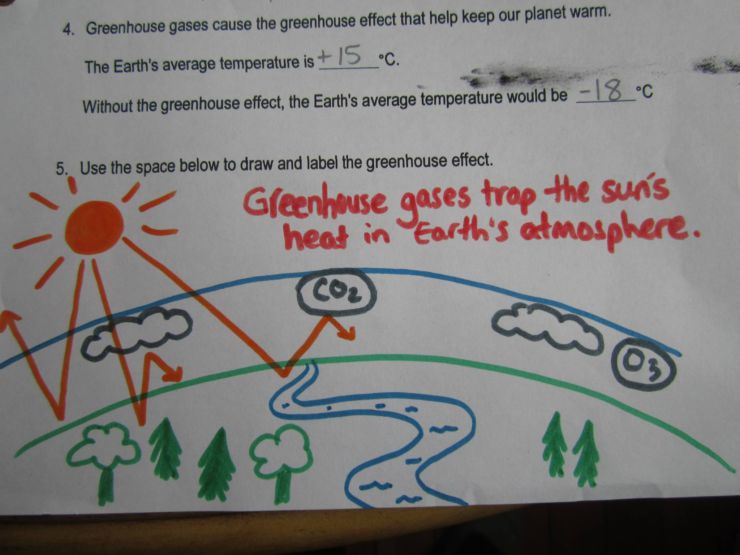 4. Greenhouse gases cause the greenhouse effect that help keep our planet warm.
The Earth's average temperature is +15 °C.
Without the greenhouse effect, the Earth's average temperature would be -18 °C
5. Use the space below to draw and label the greenhouse effect.
Greenhouse gases trap the sun's
heat in Earth's atmosphere.
CO₂
O₃